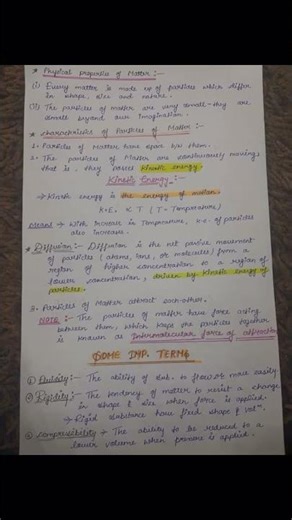 * Physical properties of Matter :-
(i) Every matter is made up of particles which differ
in shape, size and nature.
(ii) The particles of matter are very small - they are
small beyond our imagination.
* characteristics of Particles of Matter :-
1. Particles of Matter have space b/w them.
2. The particles of Matter are continuously moving
that is, they posses kinetic energy.
Kinetic Energy :-
→ Kinetic energy is the energy of motion.
K.E. ∝ T (T - Temperature)
→ With increase in Temperature, K.E. of particles
also increases.
* Diffusion :- Diffusion is the net passive movement
of particles (atoms, ions, or molecules) from a
region of higher concentration to a region of
lower concentration, driven by kinetic energy of
particles.
3. Particles of Matter attract each-other.
NOTE :- The particles of matter have force acting
between them, which keeps the particles together
is known as Intermolecular force of attraction
SOME IMP. TERMS
① Fluidity :- The ability of sub. to flow or move easily
② Rigidity :- The tendency of matter to resist a change
in shape & size when force is applied.
→ Rigid substance have fixed shape & vol^m.
③ Compressibility → The ability to be reduced to a
lower volume when pressure is applied.